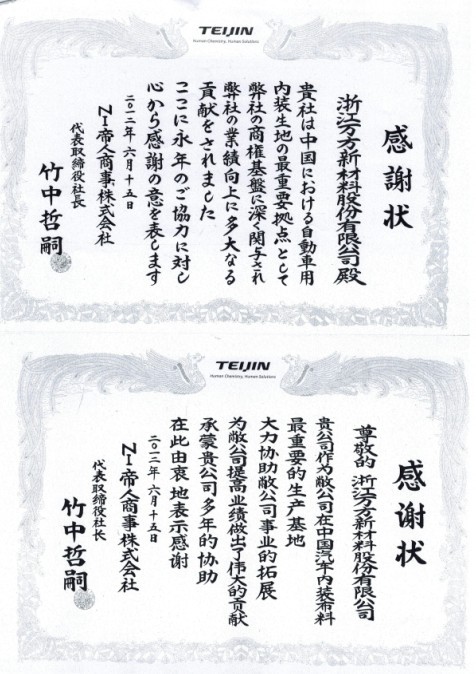 TEIJIN
Human Chemistry, Human Solutions
感謝状
浙江万方新材料股份有限公司殿
貴社は中国における自動車用
内装生地の最重要拠点として
弊社の商権基盤に深く関与され
弊社の業績向上に多大なる
貢献をされました
ここに永年のご協力に対し
心から感謝の意を表します
二〇一二年六月十五日
NI帝人商事株式会社
代表取締役社長
竹中哲嗣
TEIJIN
Human Chemistry, Human Solutions
感谢状
尊敬的 浙江万方新材料股份有限公司
贵公司作为敝公司在中国汽车内装布料
最重要的生产基地
大力协助敝公司事业的拓展
为敝公司提高业绩做出了伟大的贡献
承蒙贵公司多年的协助
在此由衷地表示感谢
二〇一二年六月十五日
NI帝人商事株式会社
代表取締役社长
竹中哲嗣